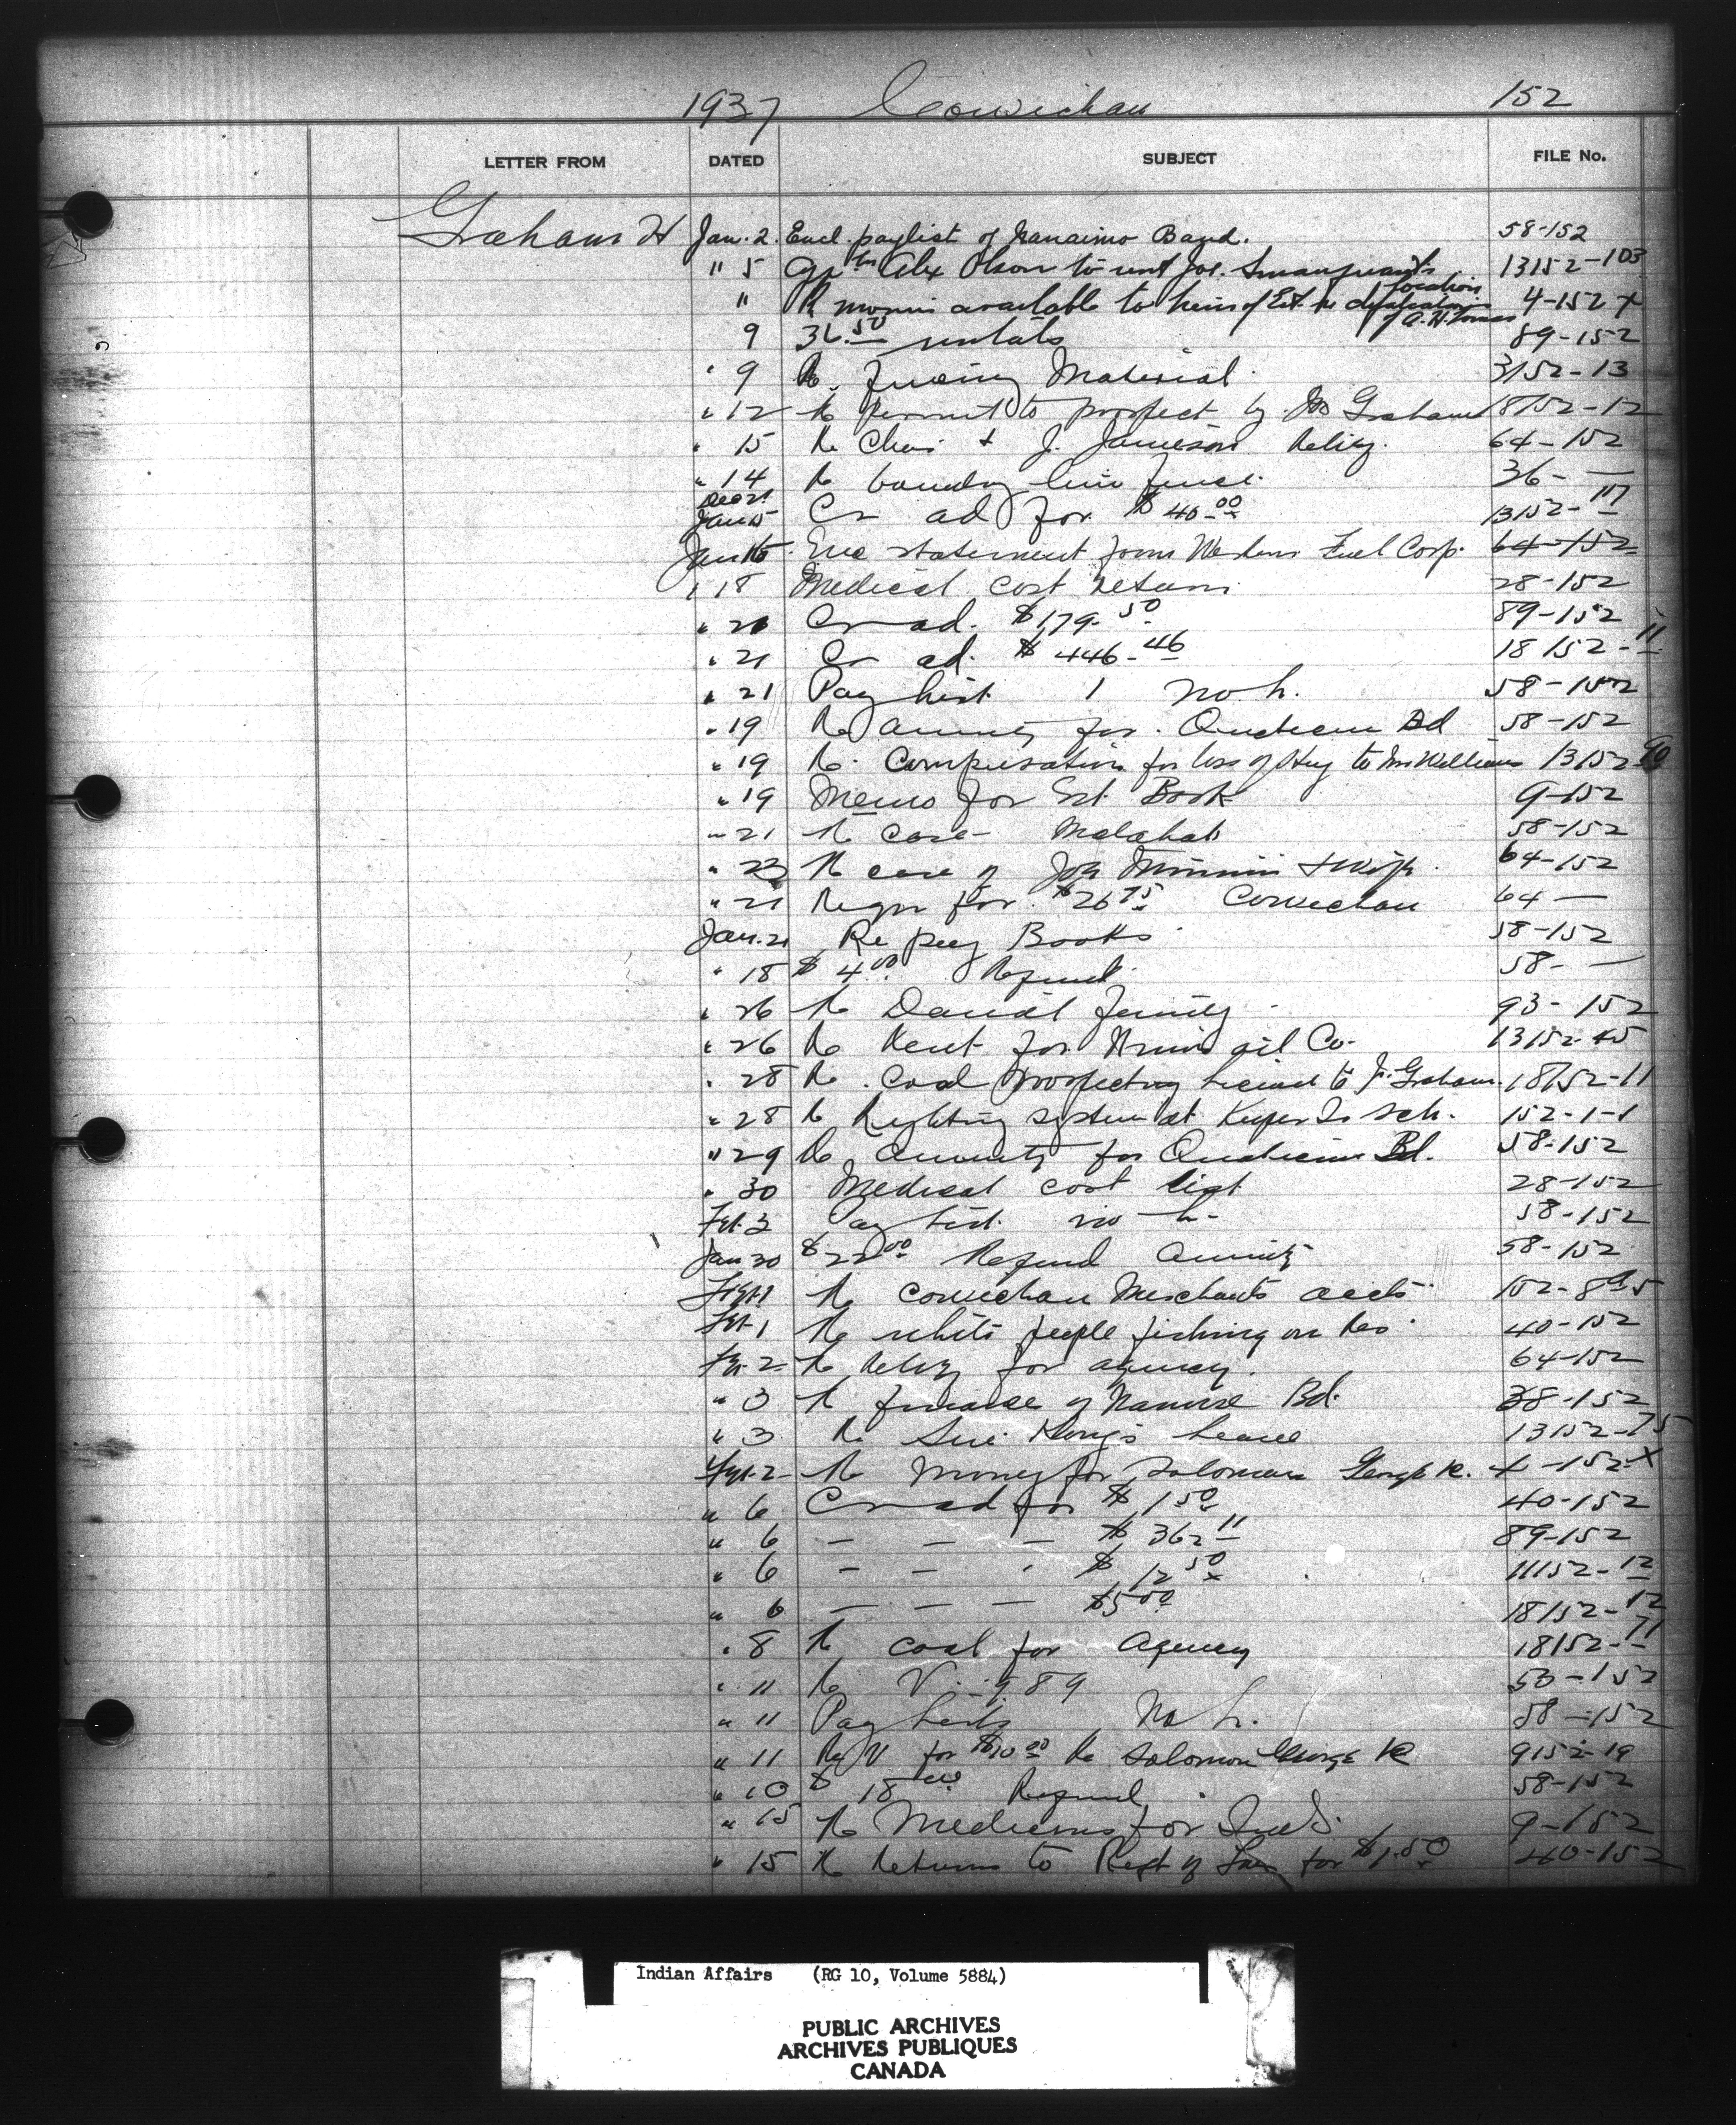 1937 Cowichan 152
LETTER FROM DATED SUBJECT FILE No.
Graham H Jan. 2. Encl. paylist of Nanaimo Band. 58-152
" 5 Alex Olson to rent Joe. 13152-103
location
" R available to heirs of Est. 4-152 x
of A. H.
9 36.50 rentals 89-152
" 9 R. fencing Material. 3152-13
" 12 R permit to prospect by Graham 18152-12
" 15 R Chas + J. Jameson Relief. 64-152
" 14 R boundry line fence. 36- —
Dec 21
Jan 15 Cr ad for $40.00 13152-117
Jan 15 Enc statement from Western Fuel Corp. 64-152
" 18 Medical cost return 28-152
" 20 Cr ad. $179.50 89-152
" 21 Cr ad. $446.46 18152-11
" 21 Pay list 1 no h. 58-152
" 19 R annuity for Qualicum Bd 58-152
" 19 R. Compensation for loss of to Mr Williams 13152-
" 19 Memo for Est. Book 9-152
" 21 R case Malahat 58-152
" 23 R case of + wife. 64-152
" 21 Reqn for $26.75 Cowichan 64 —
Jan. 21 Re pay Books 58-152
" 18 $4.00 Refund. 58- —
" 26 R Daniel family 93-152
" 26 R Rent for oil Co. 13152-45
" 28 R. Coal prospecting license to J. Graham. 18152-11
" 28 R Lighting system at Kuper Is sch. 152-1-1
" 29 R annuity for Qualicum Bd. 58-152
" 30 Medical cost list 28-152
Feb. 2 Pay list. no h- 58-152
Jan 30 $22.00 Refund Annuity 58-152
R Cowichan Merchants accts 152-8
Feb-1 R white people fishing on Res 40-152
Feb. 2 R Relief for agency. 64-152
" 3 R finance of Nanoose Bd. 38-152
" 3 R. Sue Hong's Lease 13152-75
Feb. 2 R Money for Solomon George R. 4-152-X
" 6 Cr ad for $1.50 40-152
" 6 — — — $362.11 89-152
" 6 — — " $12.50 11152-12
" 6 — — — $5.00 18152-12
" 8 R coal for Agency 18152-11
" 11 R V. 989 50-152
" 11 Pay lists No h. 58-152
" 11 R V for $10.00 Re Solomon George R 9152-19
" 10 $18.00 Refund 58-152
" 15 R Medicines for 9-152
" 15 R Returns to Rept of for $1.50 40-152
Indian Affairs (RG 10, Volume 5884)
PUBLIC ARCHIVES
ARCHIVES PUBLIQUES
CANADA